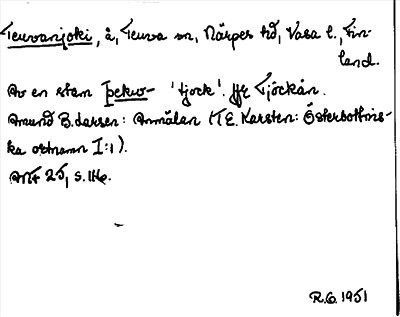 Teuvanjoki, å, Teuva sn, Närpes hd, Vasa l., Fin-
land.
Av en stam þekw- 'tjock'. Jfr Tjöckån.
Amund B. Larsen: Anmälan (T E. Karsten: Österbottnis-
ka ortnamn I:1).
ANF 25, s. 116.
R.G. 1951